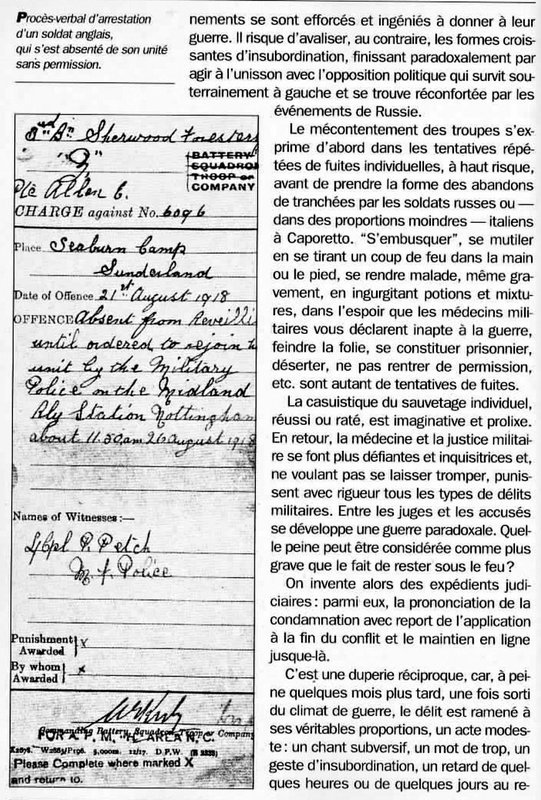 Procès-verbal d'arrestation
d'un soldat anglais,
qui s'est absenté de son unité
sans permission.
nements se sont efforcés et ingéniés à donner à leur
guerre. Il risque d'avaliser, au contraire, les formes crois-
santes d'insubordination, finissant paradoxalement par
agir à l'unisson avec l'opposition politique qui survit sou-
terrainement à gauche et se trouve réconfortée par les
événements de Russie.
Le mécontentement des troupes s'ex-
prime d'abord dans les tentatives répé-
tées de fuites individuelles, à haut risque,
avant de prendre la forme des abandons
de tranchées par les soldats russes ou —
dans des proportions moindres — italiens
à Caporetto. “S'embusquer”, se mutiler
en se tirant un coup de feu dans la main
ou le pied, se rendre malade, même gra-
vement, en ingurgitant potions et mixtu-
res, dans l'espoir que les médecins mili-
taires vous déclarent inapte à la guerre,
feindre la folie, se constituer prisonnier,
déserter, ne pas rentrer de permission,
etc. sont autant de tentatives de fuites.
La casuistique du sauvetage individuel,
réussi ou raté, est imaginative et prolixe.
En retour, la médecine et la justice militai-
re se font plus défiantes et inquisitrices et,
ne voulant pas se laisser tromper, punis-
sent avec rigueur tous les types de délits
militaires. Entre les juges et les accusés
se développe une guerre paradoxale. Quel-
le peine peut être considérée comme plus
grave que le fait de rester sous le feu ?
On invente alors des expédients judi-
ciaires : parmi eux, la prononciation de la
condamnation avec report de l'application
à la fin du conflit et le maintien en ligne
jusque-là.
C'est une duperie réciproque, car, à pei-
ne quelques mois plus tard, une fois sorti
du climat de guerre, le délit est ramené à
ses véritables proportions, un acte modes-
te : un chant subversif, un mot de trop, un
geste d'insubordination, un retard de quel-
ques heures ou de quelques jours au re-
3rd Bn Sherwood Foresters
BATTERY
SQUADRON
TROOP or
COMPANY
Pte Allen C.
CHARGE against No. 6096
Place Seaburn Camp
Sunderland
Date of Offence 21st August 1918
OFFENCE Absent from Reveille
until ordered to rejoin
unit by the Military
Police on the Midland
Rly Station Nottingham
about 11.50 am 26 August 1918
Names of Witnesses :—
L/Cpl P. Petch
M. f. Police
Punishment
Awarded
x
By whom
Awarded
x
Commanding Battery, Squadron, Troop or Company
Please Complete where marked X
and return to.